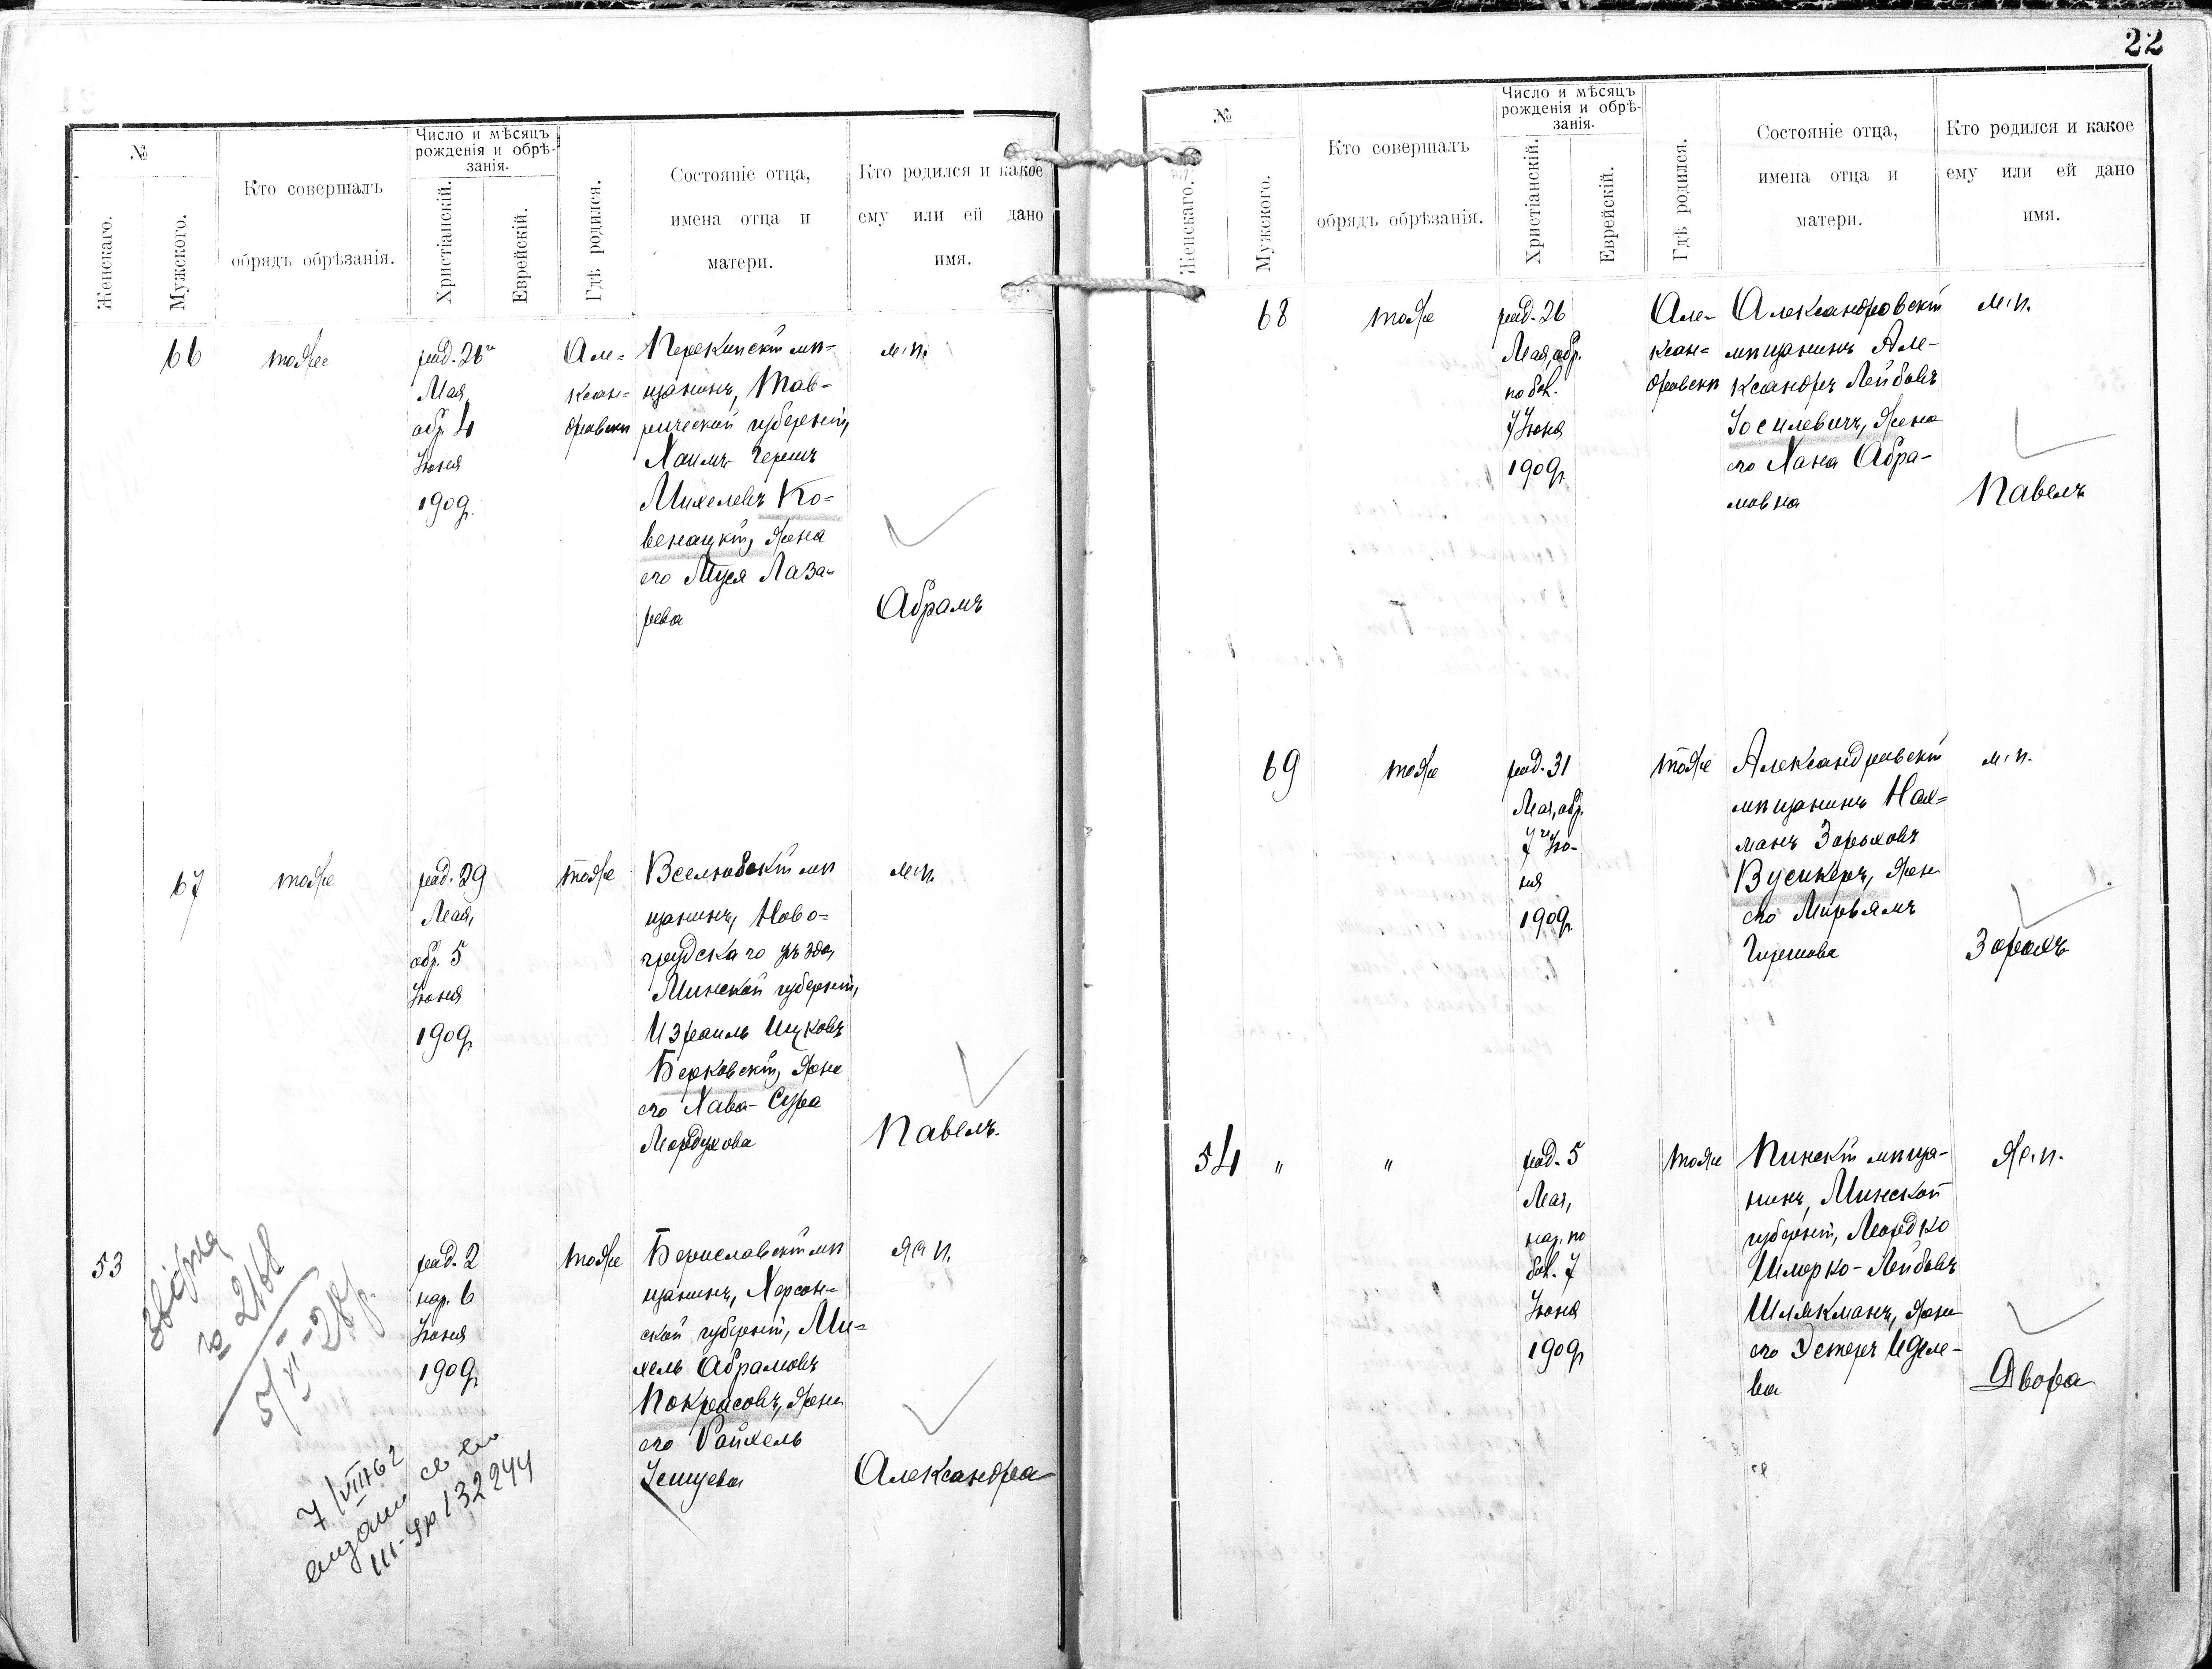 №
Женскаго.
Мужского.
Кто совершалъ
обрядъ обрѣзанія.
Число и мѣсяцъ
рожденія и обрѣ-
занія.
Христіанскій.
Еврейскій.
Гдѣ родился.
Состояніе отца,
имена отца и
матери.
Кто родился и какое
ему или ей дано
имя.
66
тоже
род. 26
Мая,
обр. 4
Іюня
1909г.
Але=
ксан=
дровскѣ
Перекипскій мѣ=
щанинъ, Тав-
рической губерніи,
Хаимъ-Гершъ
Михелевъ Ко=
венацкій, жена
его Муся Лаза-
рева
м. п.
Абрамъ
67
тоже
род. 29
Мая,
обр. 5
Іюня
1909г.
тоже
Вселюбскій мѣ
щанинъ, Ново=
грудскаго уѣзда,
Минской губерніи,
Израиль Ицковъ
Берковскій, жена
его Хава-Сура
Мордухова
м. п.
Павелъ.
53
звірка
№ 2168
5/VI-28 р.
род. 2
нар. 6
Іюня
1909г.
тоже
Бериславскій мѣ
щанинъ, Херсон=
ской губерніи, Ми=
хель Абрамовъ
Покрасовъ, жена
его Райхель
ж. п.
Александра
7/VIII 62
св во
III-ЯР 132244
22
№
Женскаго.
Мужского.
Кто совершалъ
обрядъ обрѣзанія.
Число и мѣсяцъ
рожденія и обрѣ-
занія.
Христіанскій.
Еврейскій.
Гдѣ родился.
Состояніе отца,
имена отца и
матери.
Кто родился и какое
ему или ей дано
имя.
68
тоже
род. 26
Мая, обр.
по бол.
7 Іюня
1909г.
Але-
ксан=
дровскѣ
Александровскій
мѣщанинъ Але-
ксандръ Лейбовъ
Іосилевичъ, жена
его Хана Абра-
мовна
м. п.
Павелъ
69
тоже
род. 31
Мая, обр.
7го Ію-
ня
1909г.
тоже
Александровскій
мѣщанинъ Нах=
манъ Зораховъ
Вусикеръ, жена
его Мирьямъ
Гиршова
м. п.
Зорахъ
54
"
"
род. 5
Мая,
нар. по
бол. 7
Іюня
1909г.
тоже
Пинскій мѣща-
нинъ, Минской
губерніи, Мордко
Шмерко-Лейбовъ
Шлякманъ, жена
его Эстеръ
ва
ж. п.
Двора